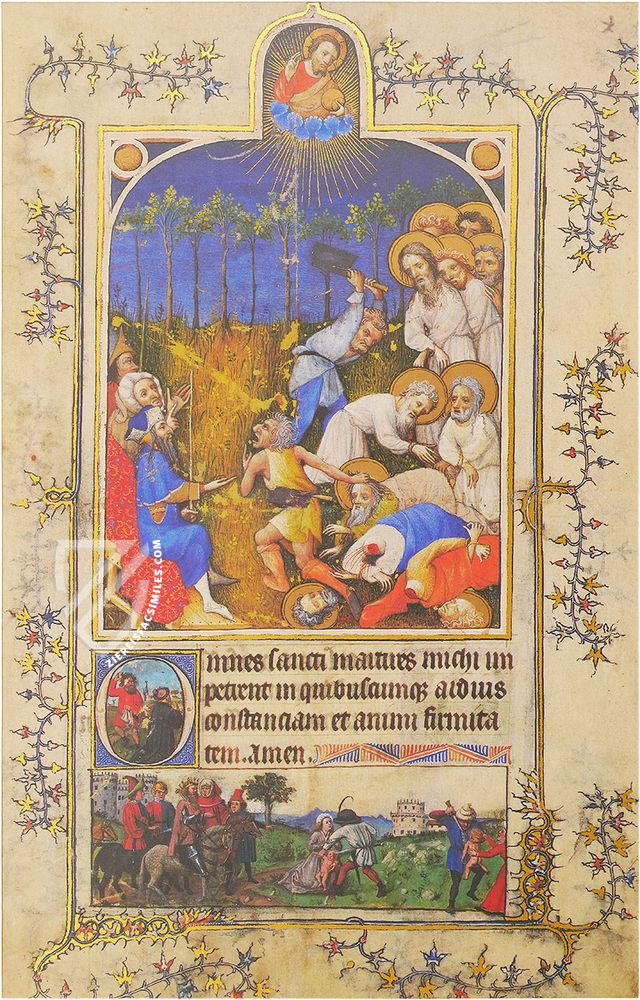 Omnes sancti martires michi im
petrent in quibuscumq arduis
constanciam et animi firmita
tem. Amen.
ZIEREISFACSIMILES.COM